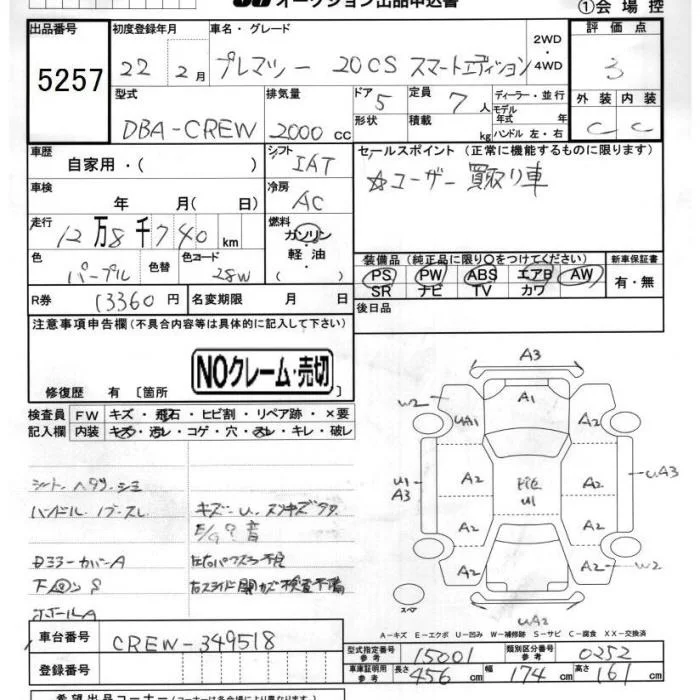 オークション出品申込書
①会場控
出品番号
5257
初度登録年月
22 2月
車名・グレード
プレマシー 20CS スマートエディション
2WD・4WD
評価点
3
型式
DBA-CREW
排気量
2000 cc
ドア 5
形状
定員 7 人
積載 kg
ディーラー・並行
モデル年式 年
ハンドル 左・右
外装 内装
C C
車歴
自家用・( )
シフト
IAT
セールスポイント (正常に機能するものに限ります)
☆ユーザー買取り車
車検
年 月( 日)
冷房
AC
走行
12万8千740km
燃料
ガソリン・軽油・( )
色
パープル
色替
色コード
28W
装備品 (純正品に限り○をつけてください)
PS PW ABS エアB AW
SR ナビ TV カワ
新車保証書
有・無
R券
13360円
名変期限 月 日
後日品
注意事項申告欄 (不具合内容等は具体的に記入して下さい)
NOクレーム・売切
修復歴 有 [箇所 ]
検査員記入欄
FW キズ・飛石・ヒビ割・リペア跡・×要
内装 キズ・汚レ・コゲ・穴・スレ・キレ・破レ
シート ヘタリ・シミ
ハンドル・ノブスレ
A3
A1
W2
UA1
A2
A2
U1
A3
A2
A2
UA3
A2
A2
W2
UA2
スペア
A-キズ E-エクボ U-凹み W-補修跡 S-サビ C-腐食 XX-交換済
車台番号
CREW-349518
登録番号
型式指定番号 参考
15001
類別区分番号 参考
0252
車庫証明用 参考
長さ 456 cm
幅 174 cm
高さ 161 cm
希望出品コーナー